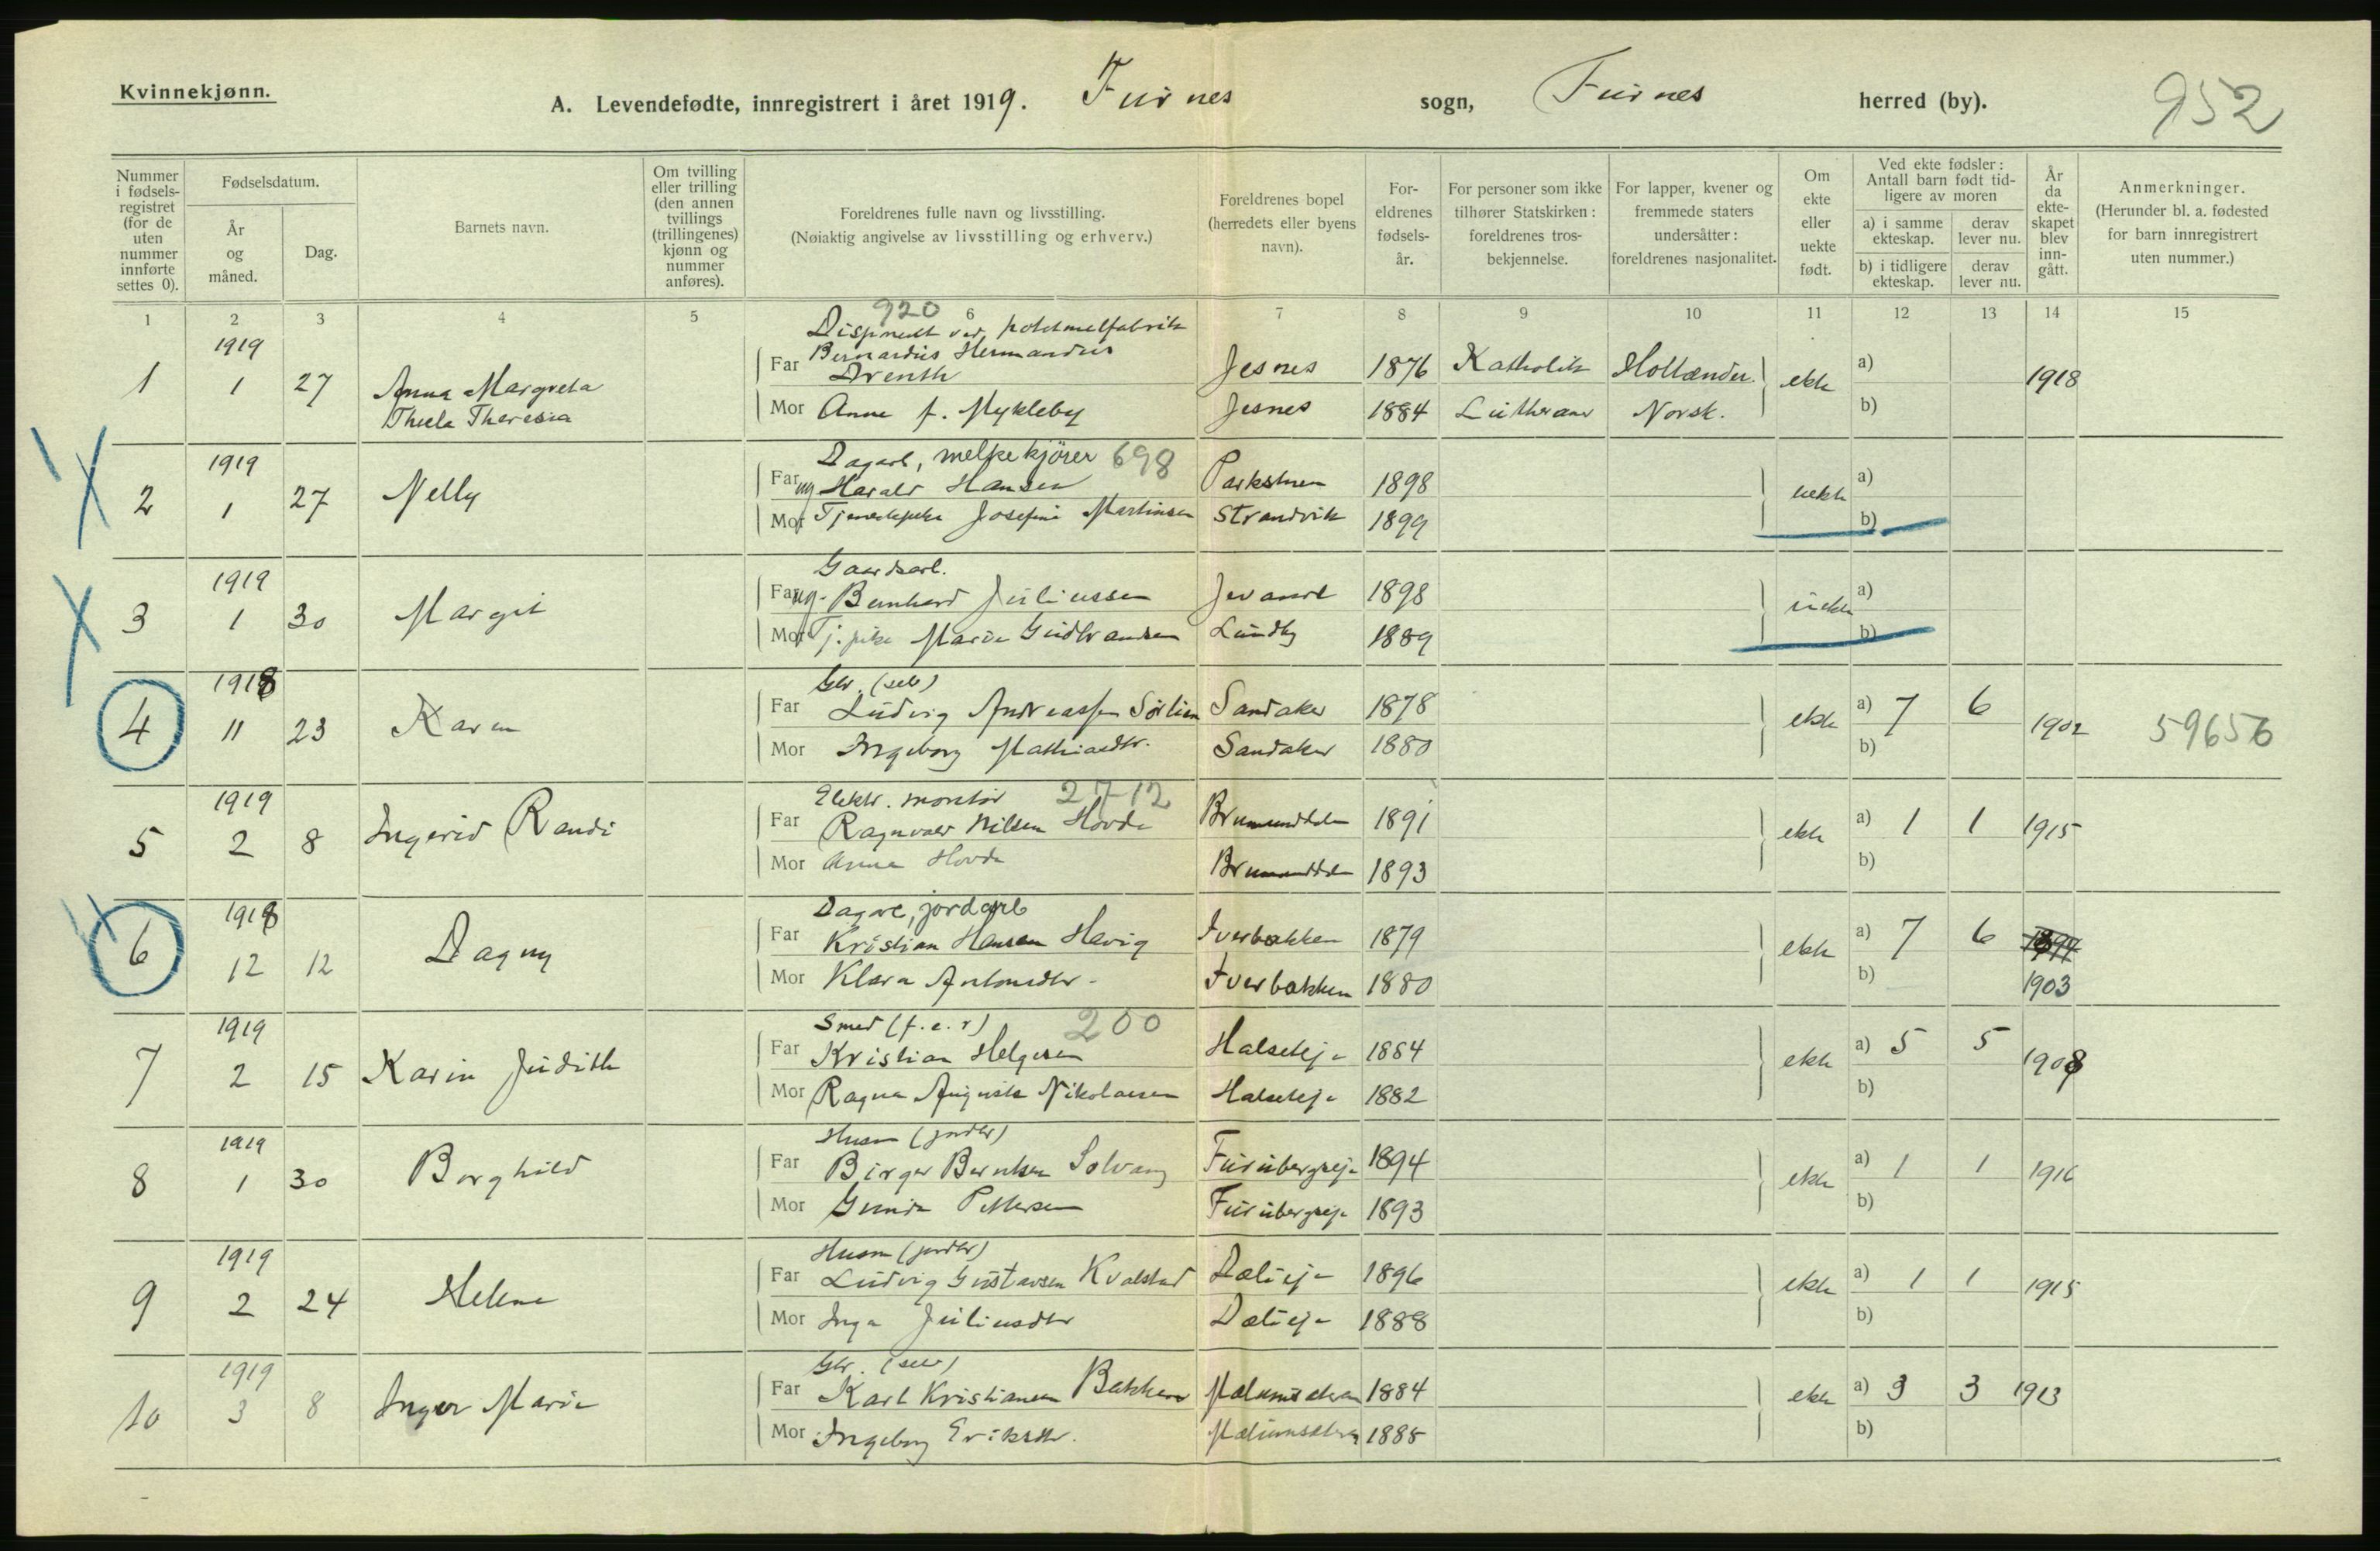 Kvinnekjønn.
A. Levendefødte, innregistrert i året 1919. Furnes sogn, Furnes herred (by). 952
Nummer i fødsels-registret (for de uten nummer innførte settes 0).
Fødselsdatum.
År og måned.
Dag.
Barnets navn.
Om tvilling eller trilling (den annen tvillings (trillingenes) kjønn og nummer anføres).
Foreldrenes fulle navn og livsstilling.
(Nøiaktig angivelse av livsstilling og erhverv.)
Foreldrenes bopel (herredets eller byens navn).
For-eldrenes fødsels-år.
For personer som ikke tilhører Statskirken: foreldrenes tros-bekjennelse.
For lapper, kvener og fremmede staters undersåtter: foreldrenes nasjonalitet.
Om ekte eller uekte født.
Ved ekte fødsler: Antall barn født tid-ligere av moren
a) i samme ekteskap. derav lever nu.
b) i tidligere ekteskap. derav lever nu.
År da ekte-skapet blev inn-gått.
Anmerkninger.
(Herunder bl. a. fødested for barn innregistrert uten nummer.)
1 2 3 4 5 6 7 8 9 10 11 12 13 14 15
920
1919
1 1 27 Anna Margreta
Thecla Theresia
Far Bernardus Hermandus
Drenth Jesnes 1876 Katholik Hollænder. ekte a) 1918
Mor Anne f. Mykleby Jesnes 1884 Lutheraner Norsk. b)
1919
Dagarb, melkekjører 698
2 1 27 Nelly
Far ug Harald Hansen 1898 uekte a)
Mor Josefine Martinsen Strandvik 1899 b)
1919
Gaardsarb.
3 1 30 Margit
Far ug. Bernhard Juliussen 1898 uekte a)
Mor Tj. pike Marie Gudbrandsen Lundby 1889 b)
1918
Gbr. (selv)
4 11 23 Karen
Far Ludvig Andreassen Sørlien Sandaker 1878 ekte a) 7 6 1902 59656
Mor Ingeborg Mathiasdtr. Sandaker 1880 b)
1919
Elektr. montør 2712
5 2 8 Ingerid Randi
Far Ragnvald Nilsen Hovde Brumunddalen 1891 ekte a) 1 1 1915
Mor Anna Hovde Brumunddalen 1893 b)
1918
Dagarb, jordarb
6 12 12 Dagny
Far Kristian Hansen Havig Iverbakken 1879 ekte a) 7 6
Mor Klara Antonsdtr. Iverbakken 1880 b) 1903
1919
Smed (f. e. r) 200
7 2 15 Karin Judith
Far Kristian Helgesen Halseteje 1884 ekte a) 5 5 1908
Mor Ragna Augusta Nikolaisen Halseteje 1882 b)
1919
Husm (jordbr)
8 1 30 Borghild
Far Birger Berntsen Solvang Furubergseje 1894 ekte a) 1 1 1916
Mor Gunda Pettersen Furubergseje 1893 b)
1919
Husm (jordbr)
9 2 24 Helene
Far Ludvig Gustavsen Kvalstad Dælieje 1896 ekte a) 1 1 1915
Mor Inga Juliusdtr Dælieje 1888 b)
1919
Gbr. (selv)
10 3 8 Inger Marie
Far Karl Kristiansen Bakken 1884 ekte a) 3 3 1913
Mor Ingeborg Eriksdtr. 1885 b)